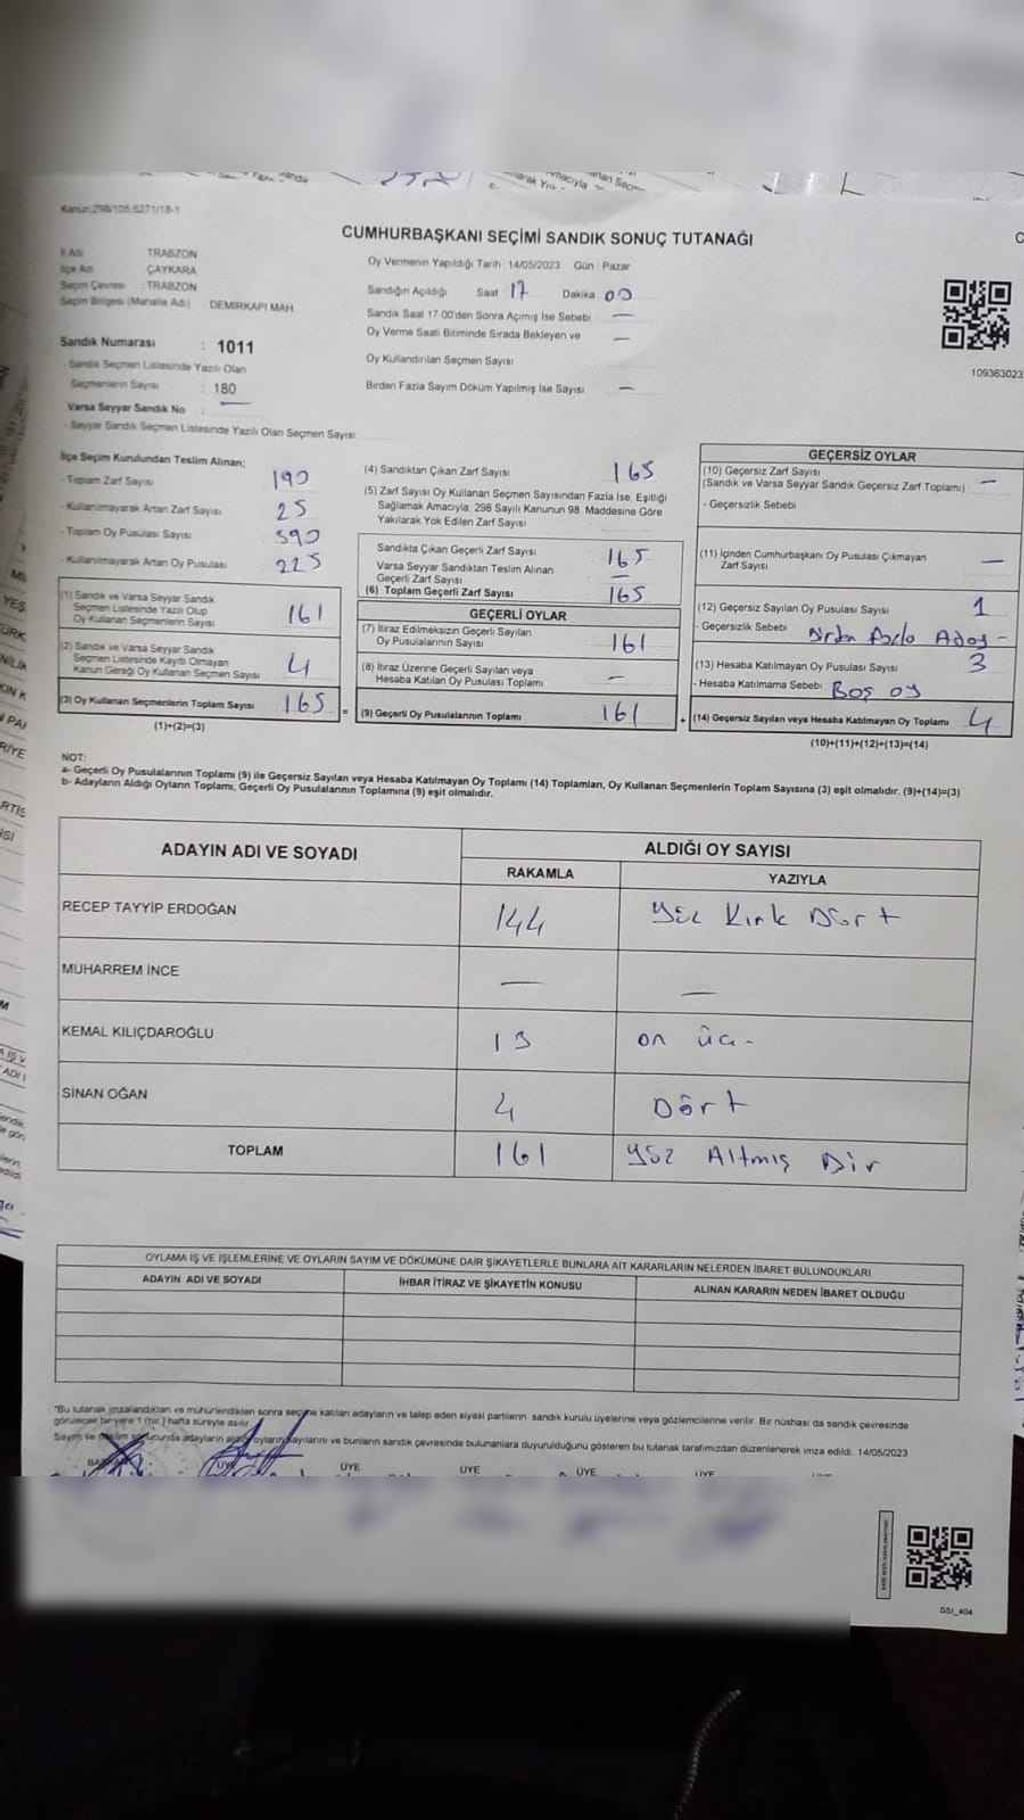 Kanun:298/105.6271/18-1
CUMHURBAŞKANI SEÇİMİ SANDIK SONUÇ TUTANAĞI
İl Adı TRABZON
İlçe Adı ÇAYKARA
Seçim Çevresi : TRABZON
Seçim Bölgesi (Mahalle Adı) DEMİRKAPI MAH
Sandık Numarası : 1011
- Sandık Seçmen Listesinde Yazılı Olan
Seçmenlerin Sayısı : 180
Varsa Seyyar Sandık No :
- Seyyar Sandık Seçmen Listesinde Yazılı Olan Seçmen Sayısı
Oy Vermenin Yapıldığı Tarih 14/05/2023 Gün : Pazar
Sandığın Açıldığı Saat 17 Dakika 00
Sandık Saat 17:00'den Sonra Açılmış İse Sebebi —
Oy Verme Saati Bitiminde Sırada Bekleyen ve —
Oy Kullandırılan Seçmen Sayısı
Birden Fazla Sayım Döküm Yapılmış İse Sayısı —
109363023
İlçe Seçim Kurulundan Teslim Alınan;
- Toplam Zarf Sayısı 190
- Kullanılmayarak Artan Zarf Sayısı 25
- Toplam Oy Pusulası Sayısı 390
- Kullanılmayarak Artan Oy Pusulası 225
(1) Sandık ve Varsa Seyyar Sandık
Seçmen Listesinde Yazılı Olup
Oy Kullanan Seçmenlerin Sayısı 161
(2) Sandık ve Varsa Seyyar Sandık
Seçmen Listesinde Kayıtlı Olmayan
Kanun Gereği Oy Kullanan Seçmen Sayısı 4
(3) Oy Kullanan Seçmenlerin Toplam Sayısı 165
(1)+(2)=(3)
(4) Sandıktan Çıkan Zarf Sayısı 165
(5) Zarf Sayısı Oy Kullanan Seçmen Sayısından Fazla İse, Eşitliği
Sağlamak Amacıyla, 298 Sayılı Kanunun 98. Maddesine Göre
Yakılarak Yok Edilen Zarf Sayısı
Sandıkta Çıkan Geçerli Zarf Sayısı 165
Varsa Seyyar Sandıktan Teslim Alınan
Geçerli Zarf Sayısı —
(6) Toplam Geçerli Zarf Sayısı 165
GEÇERLİ OYLAR
(7) İtiraz Edilmeksizin Geçerli Sayılan
Oy Pusulalarının Sayısı 161
(8) İtiraz Üzerine Geçerli Sayılan veya
Hesaba Katılan Oy Pusulası Toplamı —
= (9) Geçerli Oy Pusulalarının Toplamı 161
GEÇERSİZ OYLAR
(10) Geçersiz Zarf Sayısı
(Sandık ve Varsa Seyyar Sandık Geçersiz Zarf Toplamı) —
- Geçersizlik Sebebi
(11) İçinden Cumhurbaşkanı Oy Pusulası Çıkmayan
Zarf Sayısı —
(12) Geçersiz Sayılan Oy Pusulası Sayısı 1
- Geçersizlik Sebebi Birden Fazla Aday -
(13) Hesaba Katılmayan Oy Pusulası Sayısı 3
- Hesaba Katılmama Sebebi Boş oy
+ (14) Geçersiz Sayılan veya Hesaba Katılmayan Oy Toplamı 4
(10)+(11)+(12)+(13)=(14)
NOT:
a- Geçerli Oy Pusulalarının Toplamı (9) ile Geçersiz Sayılan veya Hesaba Katılmayan Oy Toplamı (14) Toplamları, Oy Kullanan Seçmenlerin Toplam Sayısına (3) eşit olmalıdır. (9)+(14)=(3)
b- Adayların Aldığı Oyların Toplamı, Geçerli Oy Pusulalarının Toplamına (9) eşit olmalıdır.
ADAYIN ADI VE SOYADI ALDIĞI OY SAYISI
RAKAMLA YAZIYLA
RECEP TAYYİP ERDOĞAN 144 Yüz Kırk Dört
MUHARREM İNCE — —
KEMAL KILIÇDAROĞLU 13 on üç -
SİNAN OĞAN 4 Dört
TOPLAM 161 Yüz Altmış Bir
OYLAMA İŞ VE İŞLEMLERİNE VE OYLARIN SAYIM VE DÖKÜMÜNE DAİR ŞİKAYETLERLE BUNLARA AİT KARARLARIN NELERDEN İBARET BULUNDUKLARI
ADAYIN ADI VE SOYADI İHBAR İTİRAZ VE ŞİKAYETİN KONUSU ALINAN KARARIN NEDEN İBARET OLDUĞU
"Bu tutanak imzalandıktan ve mühürlendikten sonra seçime katılan adayların ve talep eden siyasi partilerin sandık kurulu üyelerine veya gözlemcilerine verilir. Bir nüshası da sandık çevresinde
görülecek bir yere 1 (bir) hafta süreyle asılır.
Sayım ve döküm sonucunda adayların aldığı oyların sayılarını ve bunların sandık çevresinde bulunanlara duyurulduğunu gösteren bu tutanak tarafımızdan düzenlenerek imza edildi. 14/05/2023
ÜYE ÜYE ÜYE ÜYE ÜYE